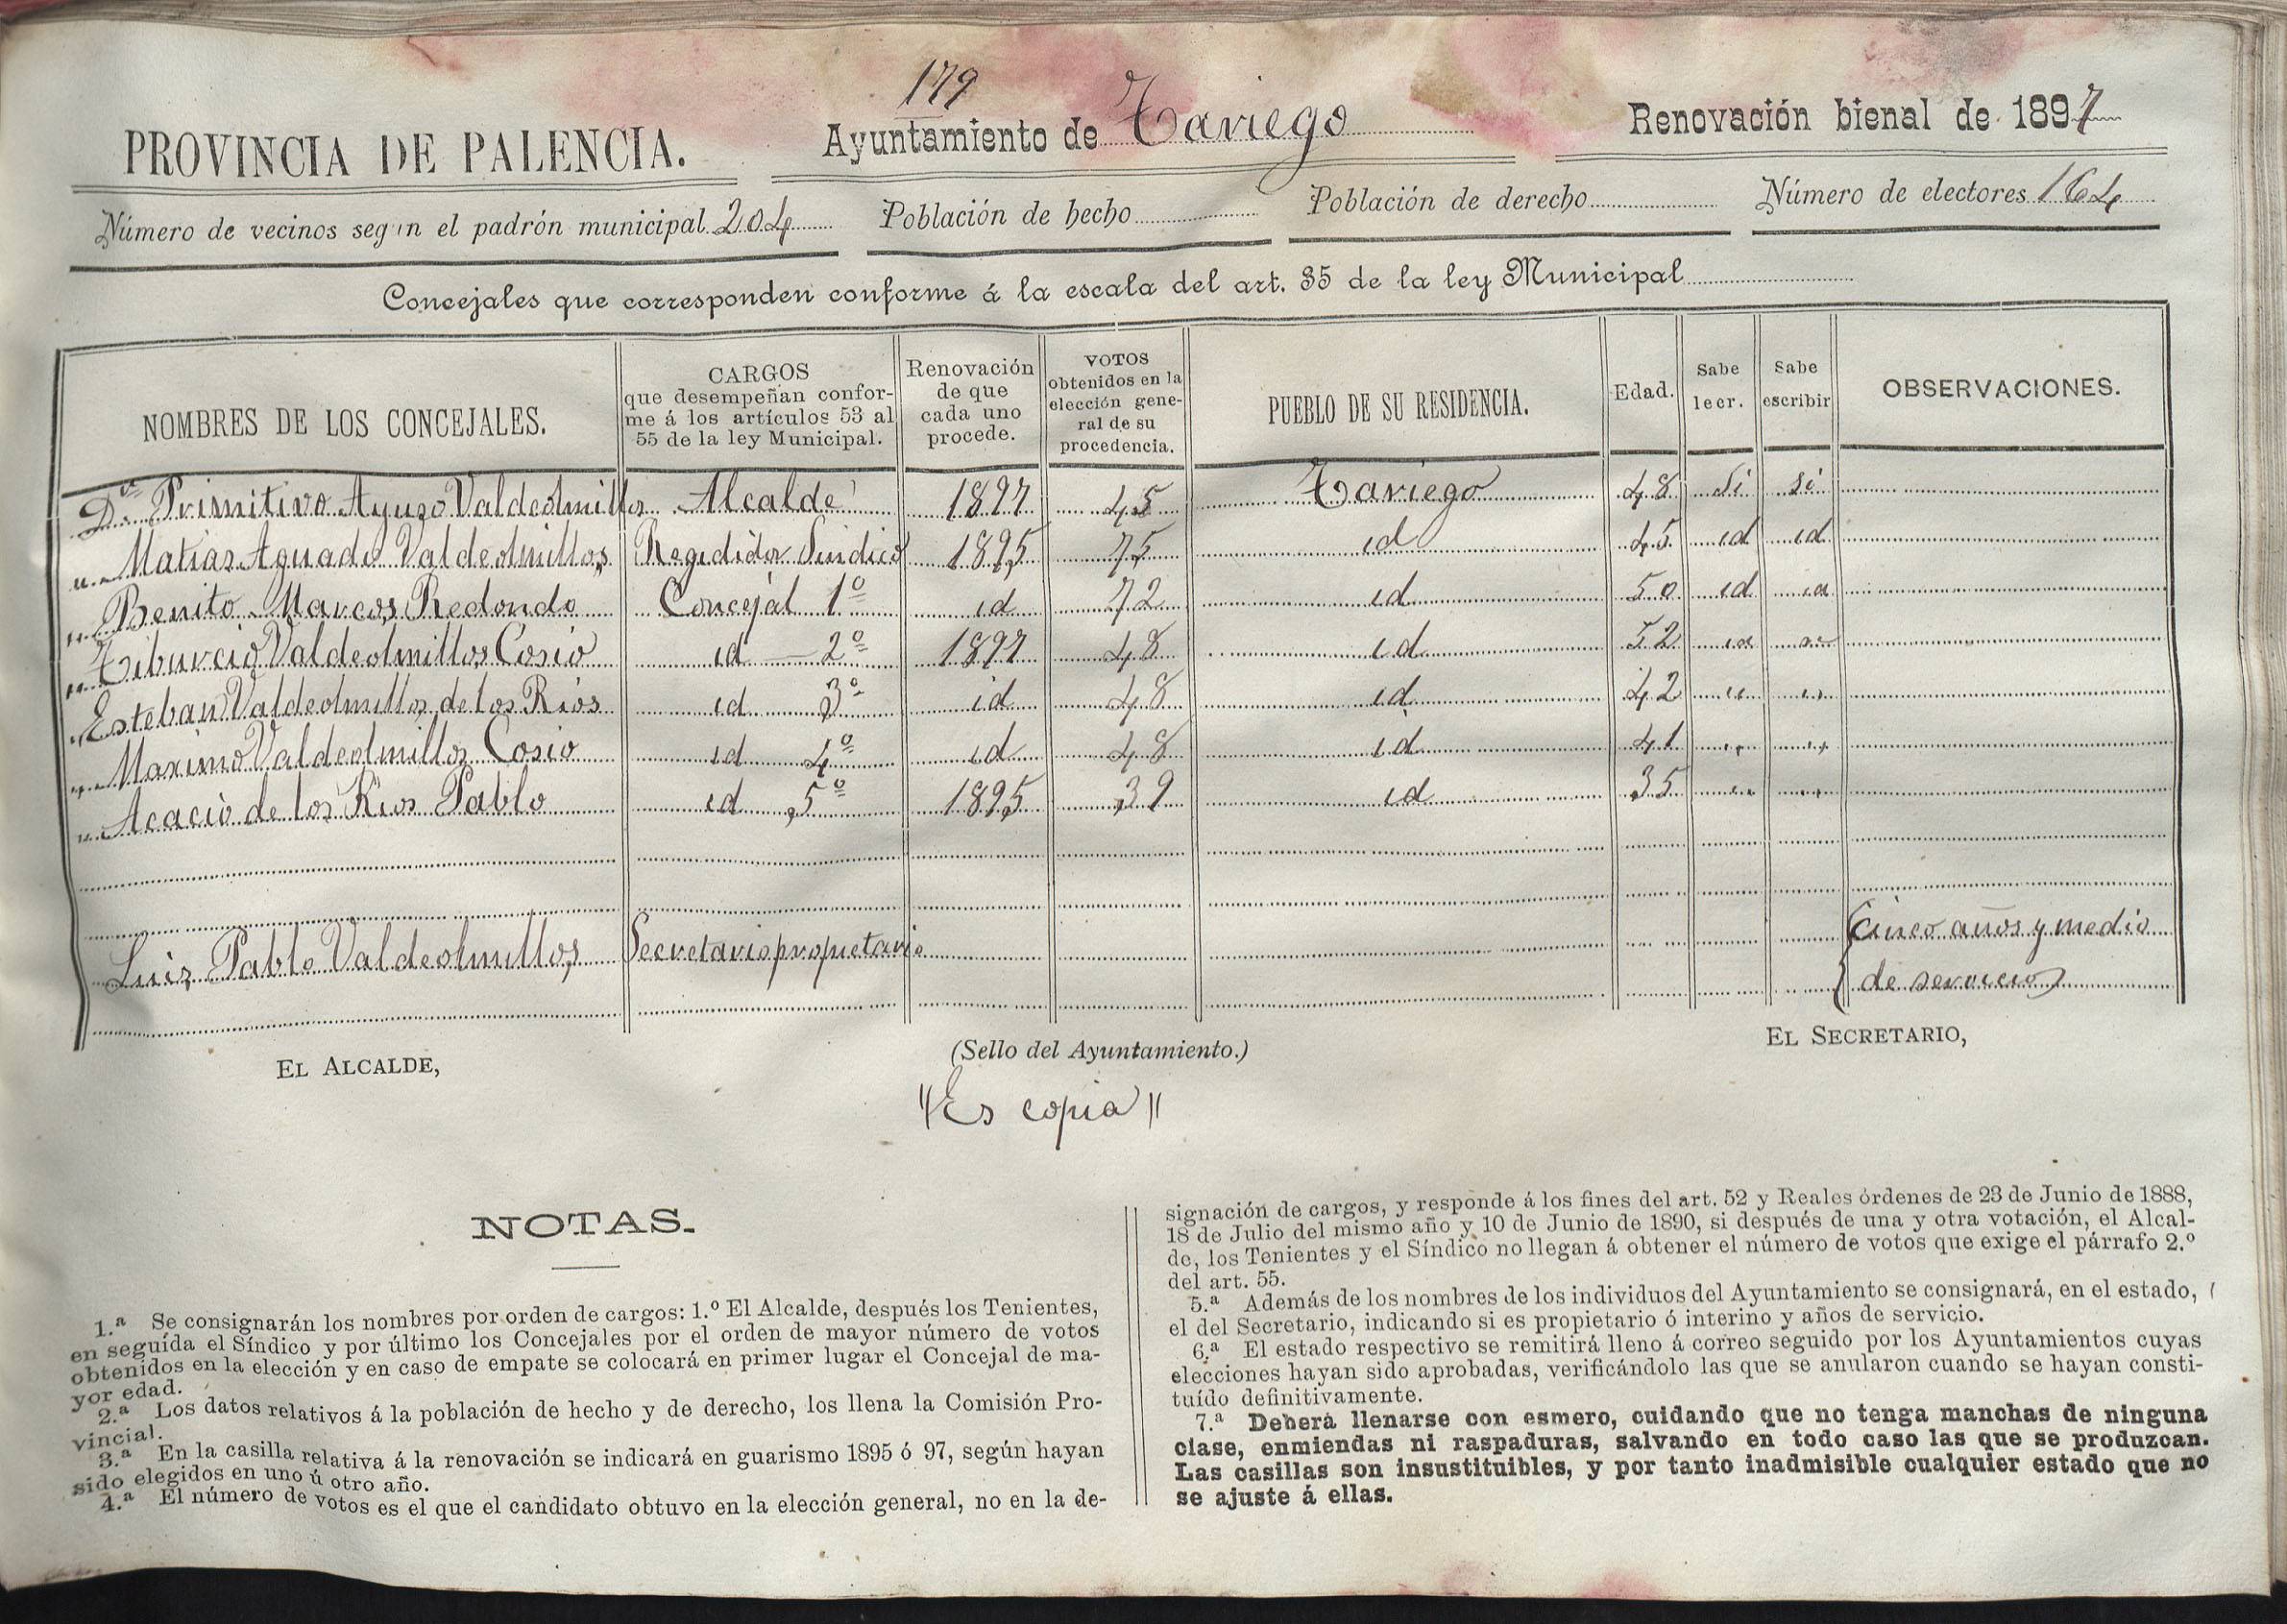 179
PROVINCIA DE PALENCIA. Ayuntamiento de Tariego Renovación bienal de 1897
Número de vecinos según el padrón municipal 204 Población de hecho Población de derecho Número de electores 164
Concejales que corresponden conforme á la escala del art. 35 de la ley Municipal
NOMBRES DE LOS CONCEJALES. CARGOS que desempeñan confor- me á los artículos 53 al 55 de la ley Municipal. Renovación de que cada uno procede. VOTOS obtenidos en la elección gene- ral de su procedencia. PUEBLO DE SU RESIDENCIA. Edad. Sabe leer. Sabe escribir OBSERVACIONES.
Dn. Primitivo Ayuso Valdeolmillos Alcalde 1897 45 Tariego 48 Si si
" Matias Aguado Valdeolmillos Regididor Sindico 1895 75 id 45 id id
" Benito Marcos Redondo Concejal 1º id 72 id 50 id id
" Tiburcio Valdeolmillos Cosio id 2º 1897 48 id 52 id "
" Esteban Valdeolmillos de los Rios id 3º id 48 id 42 " "
" Maximo Valdeolmillos Cosio id 4º id 48 id 41 " "
" Acacio de los Rios Pablo id 5º 1895 39 id 35 " "
Luis Pablo Valdeolmillos Secretario propietario Cinco años y medio
de servicio
EL ALCALDE, (Sello del Ayuntamiento.) EL SECRETARIO,
"Es copia"
NOTAS.
1.ª Se consignarán los nombres por orden de cargos: 1.º El Alcalde, después los Tenientes,
en seguída el Síndico y por último los Concejales por el orden de mayor número de votos
obtenidos en la elección y en caso de empate se colocará en primer lugar el Concejal de ma-
yor edad.
2.ª Los datos relativos á la población de hecho y de derecho, los llena la Comisión Pro-
vincial.
3.ª En la casilla relativa á la renovación se indicará en guarismo 1895 ó 97, según hayan
sido elegidos en uno ú otro año.
4.ª El número de votos es el que el candidato obtuvo en la elección general, no en la de-
signación de cargos, y responde á los fines del art. 52 y Reales órdenes de 23 de Junio de 1888,
18 de Julio del mismo año y 10 de Junio de 1890, si después de una y otra votación, el Alcal-
de, los Tenientes y el Síndico no llegan á obtener el número de votos que exige el párrafo 2.º
del art. 55.
5.ª Además de los nombres de los individuos del Ayuntamiento se consignará, en el estado,
el del Secretario, indicando si es propietario ó interino y años de servicio.
6.ª El estado respectivo se remitirá lleno á correo seguido por los Ayuntamientos cuyas
elecciones hayan sido aprobadas, verificándolo las que se anularon cuando se hayan consti-
tuído definitivamente.
7.ª Deberá llenarse con esmero, cuidando que no tenga manchas de ninguna
clase, enmiendas ni raspaduras, salvando en todo caso las que se produzcan.
Las casillas son insustituibles, y por tanto inadmisible cualquier estado que no
se ajuste á ellas.